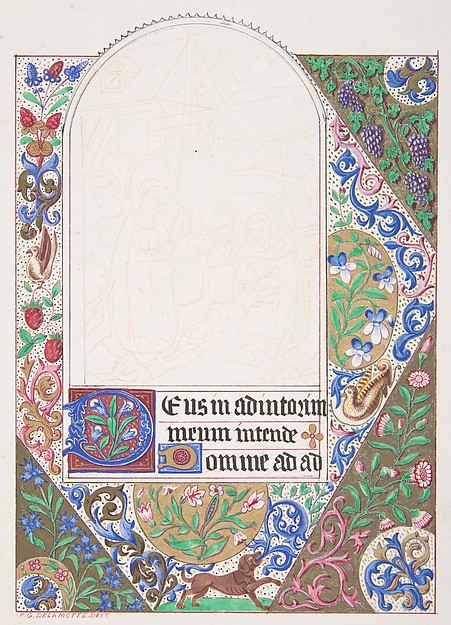 DEus in adiutorium
meum intende
Domine ad ad
F.G. DELAMOTTE. DELT